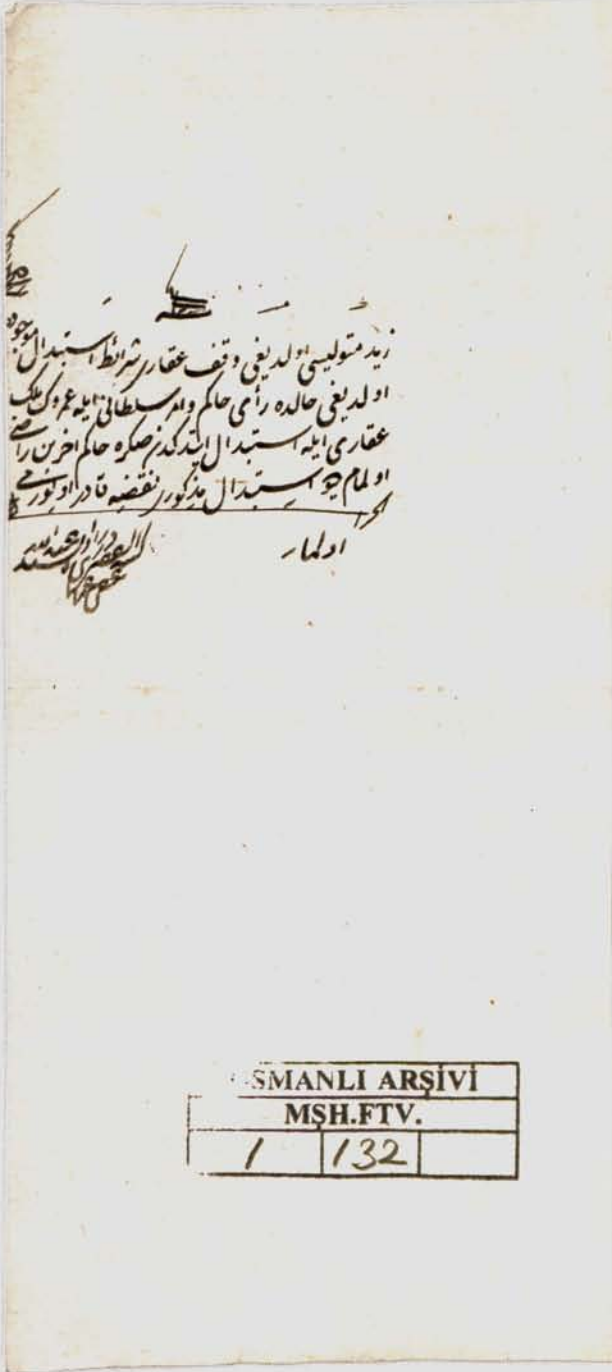 زيد متوليسى اولديغى وقف عقارى شرائط استبدال موجوده
اولديغى حالده رأى حاكم وامر سلطانى ايله عمروك ملك
عقارى ايله استبدال ايتدكدن صكره حاكم اخر بن راضى
اولمام ديو استبدال مذكورى نقضه قادر اولورمى
الجواب
اولماز
OSMANLI ARŞİVİ
MŞH.FTV.
1 132